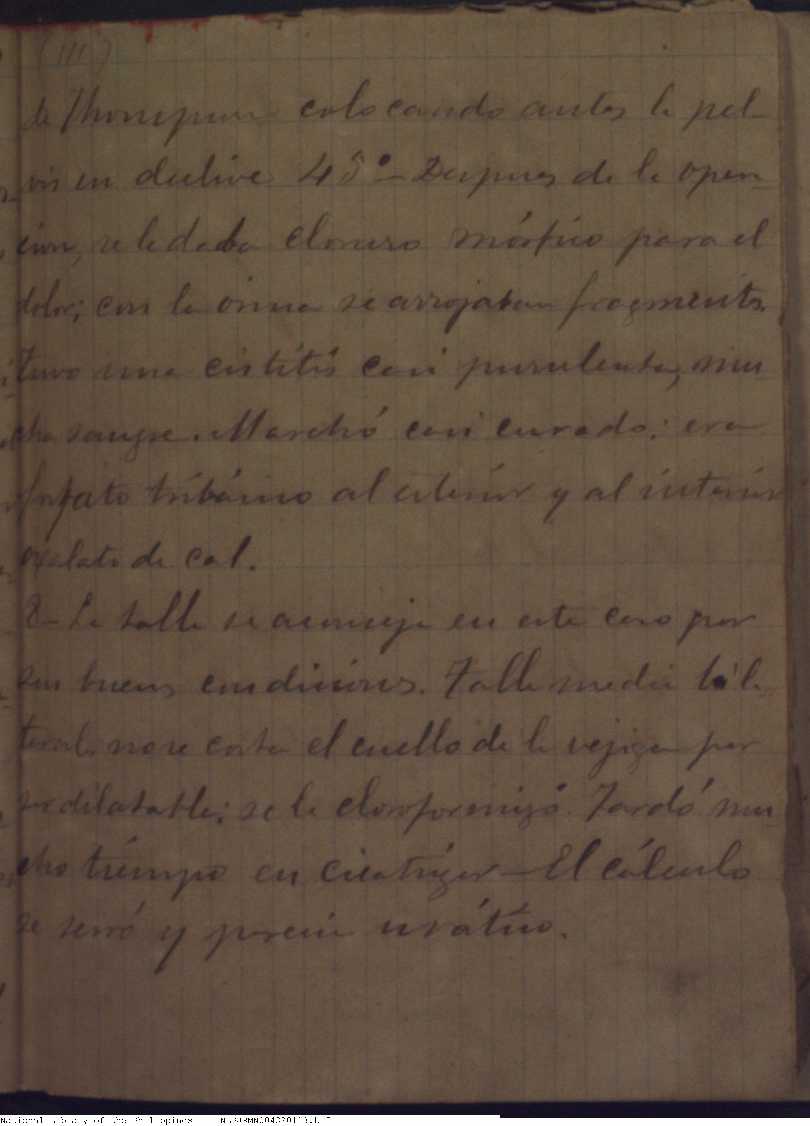 (111)
de Thompson colocando antes la pel-
vis en declive 45°— Despues de la opera-
cion, se le daba cloruro mórfico para el
dolor; con la orina se arrojaban fragmentos.
Tuvo una cistitis casi purulenta, mu-
cha sangre. Marchó casi curado; era
fosfato tribásico al exterior y al interior
oxalato de cal.
8— La talla se aconseja en este caso por
sus buenas condiciones. Talla media bila-
teral. no se corta el cuello de la vejiga por
ser dilatable; se le cloroformizó. Tardó mu-
cho tiempo en cicatrizar— El cálculo
se serró y parecia urático.
National Library of the Philippines